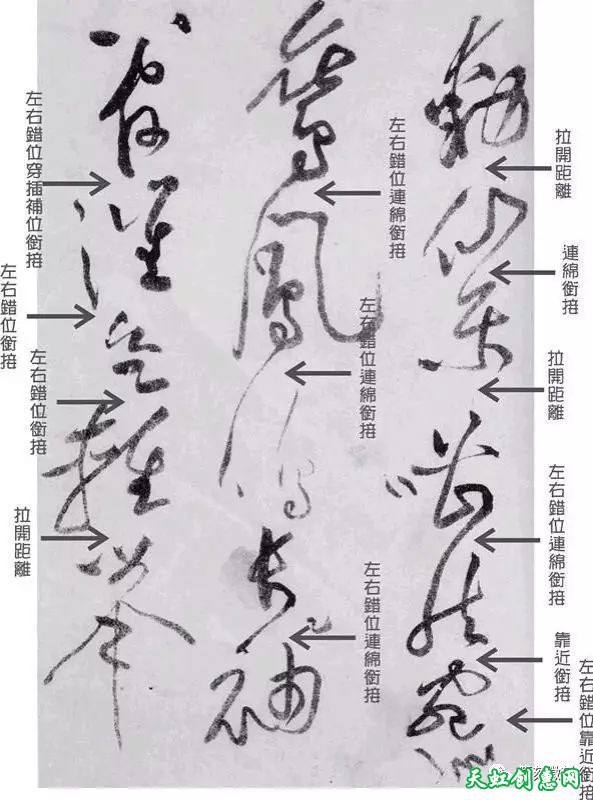 拉開距離
連綿銜接
拉開距離
左右錯位連綿銜接
靠近銜接
左右錯位靠近銜接
動仙樂嘈然宛似
左右錯位連綿銜接
左右錯位連綿銜接
左右錯位連綿銜接
鸞鳳鳴長袖
管催欲輕舉
左右錯位穿插補位銜接
左右錯位銜接
左右錯位銜接
拉開距離
天虹创意网